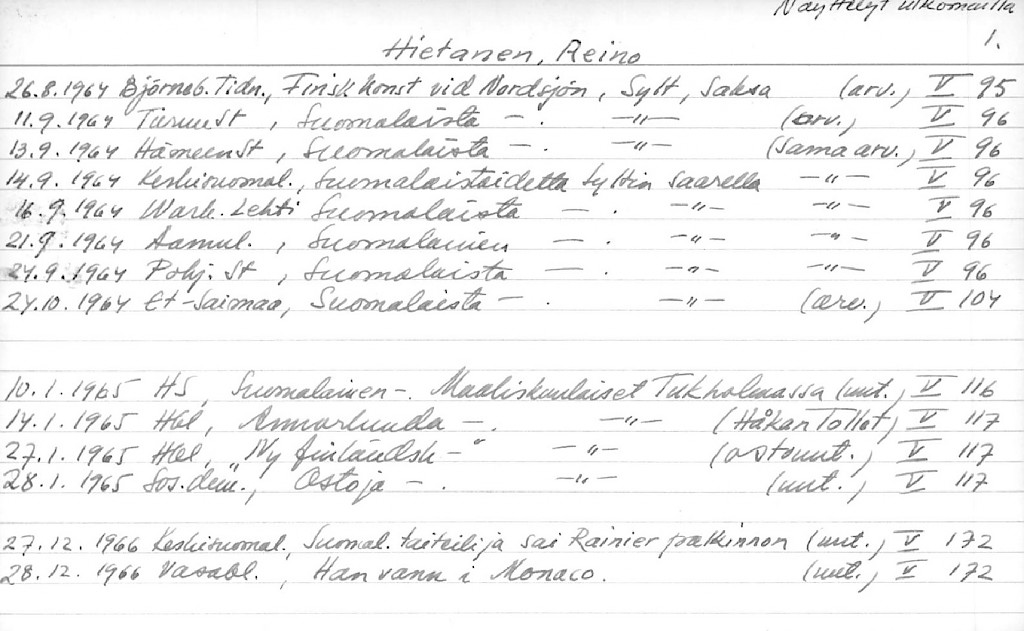 Näyttelyt ulkomailla
1.
Hietanen, Reino
26.8.1964 Björneb. Tidn., Finsk konst vid Nordsjön, Sylt, Saksa (arv.) V 95
11.9.1964 TurunSt , Suomalaista — . —"— (arv.) V 96
13.9.1964 HämeenSt , Suomalaista — . —"— (Sama arv.) V 96
14.9.1964 Keskisuomal., Suomalaistaidetta Syltin saarella —"— V 96
16.9.1964 Wark. Lehti Suomalaista — . —"— —"— V 96
21.9.1964 Aamul. , Suomalainen — . —"— —"— V 96
24.9.1964 Pohj. St , Suomalaista — . —"— —"— V 96
24.10.1964 Et-Saimaa, Suomalaista — . —"— (arv.) V 104
10.1.1965 HS, Suomalainen —. Maaliskuulaiset Tukholmassa (uut.) V 116
14.1.1965 Hbl, Annorlunda —. —"— (Håkan Tollet) V 117
27.1.1965 Hbl, "Ny finländsk —" —"— (ostouut.) V 117
28.1.1965 Sos.dem., Ostoja — . —"— (uut.) V 117
27.12.1966 Keskisuomal., Suomal. taiteilija sai Rainier palkinnon (uut.) V 172
28.12.1966 Vasabl. , Han vann i Monaco. (uut.) V 172